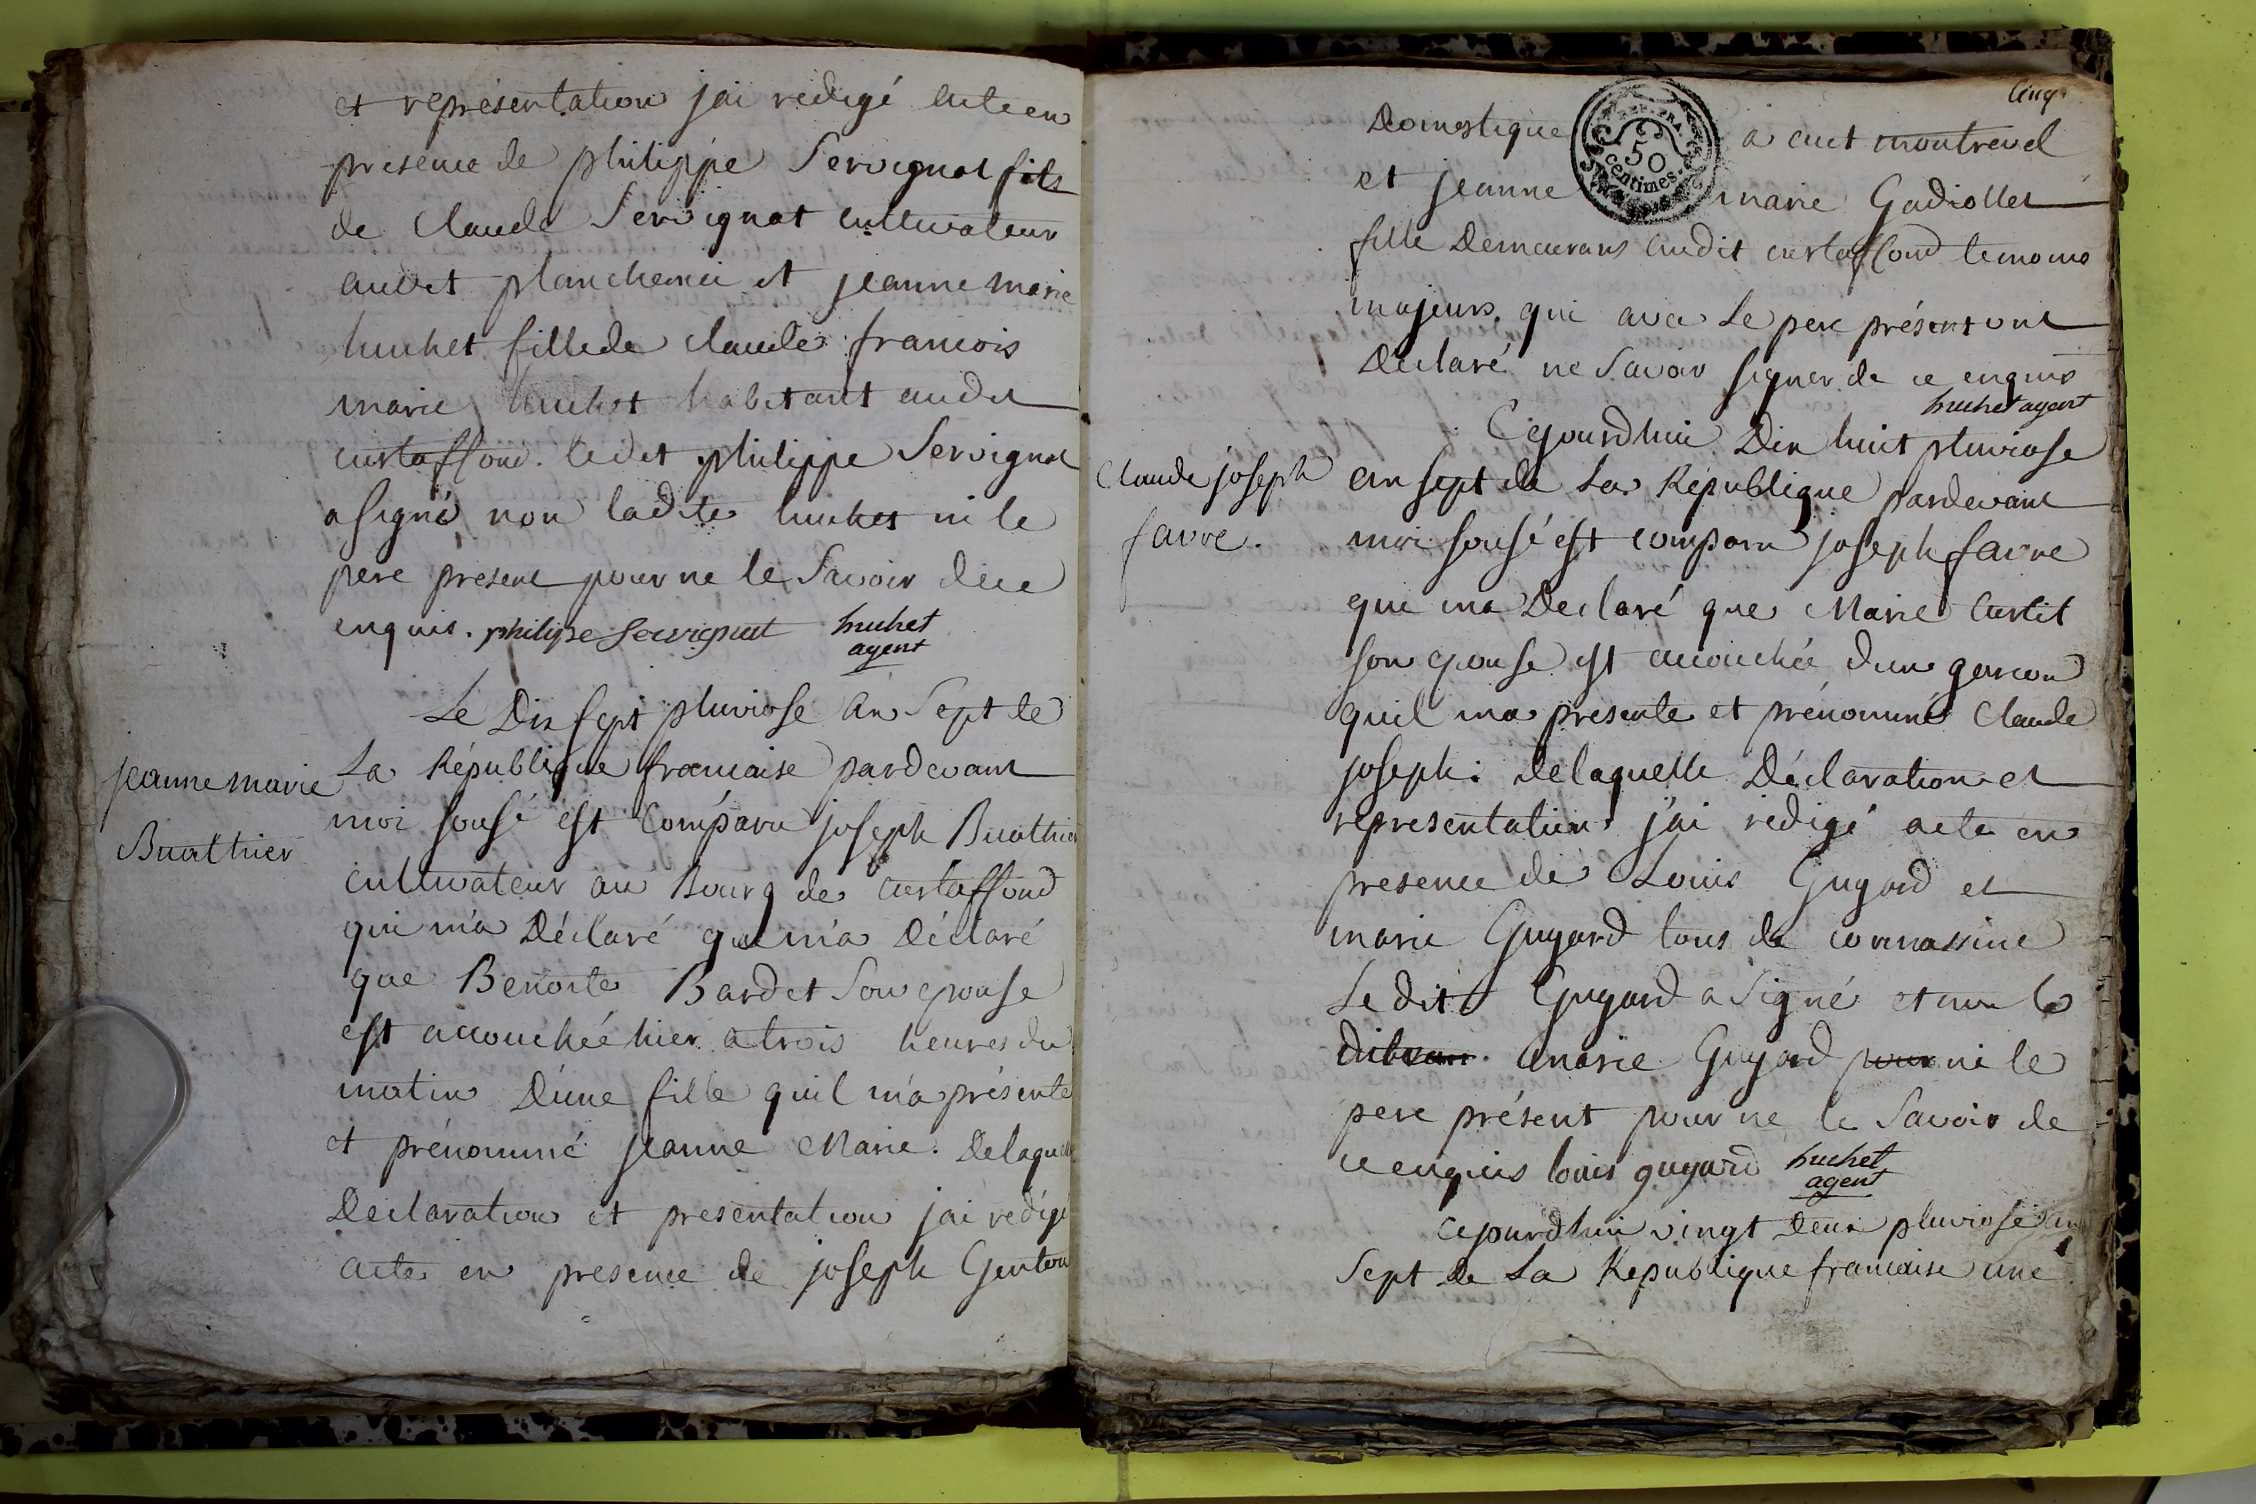 et représentation jai redigé acte en
presence de philippe Servignat fils
de Claude Servignat cultivateur
audit planchemin et jeanne marie
huchet fille de claude francois
marie huchet habitant audit
curtaffond. ledit philippe Servignat
a signé non ladite huchet ni le
pere present pour ne le Savoir de ce
enquis. philipe servignat huchet
agent
Le Dix sept pluviose an Sept de
jeanne marie
Buathier
La République francaise pardevant
moi sousé est Comparu joseph Buathier
cultivateur au Bourg de curtaffond
qui m'a Déclaré que m'a Déclaré
que Benoite Bardet Son epouse
est accouchée hier a trois heures du
matin D'une fille quil m'a présenté
et prénommé jeanne Marie. Delaquelle
Declaration et presentation j'ai redigé
acte en presence de joseph Genton
Cinq
Domestique a cuet montrevel
50
centimes.
et jeanne marie Gadiollet
fille Demeurans audit curtaffond temoins
majeurs. qui avec Le pere présent ont
Déclaré ne Savoir signer de ce enquis
huchet agent
Cejourdhui Dix huit pluviose
Claude joseph
favre.
an sept de La République pardevant
moi sousé est comparu joseph favre
qui ma Declaré que Marie Curtil
son epouse est accouchée d'un garcon
quil ma presenté et prénommé Claude
joseph. delaquelle Déclaration et
representation j'ai redigé acte en
presence de Louis Guyard et
marie Guyard tous de cornassine
Le dit Guyard a Signé et non la
marie Guyard pour ni le
pere présent pour ne le Savoir de
ce enquis louis guyard huchet
agent
cejourdhui vingt Deux pluviose an
Sept de La Republique francaise une